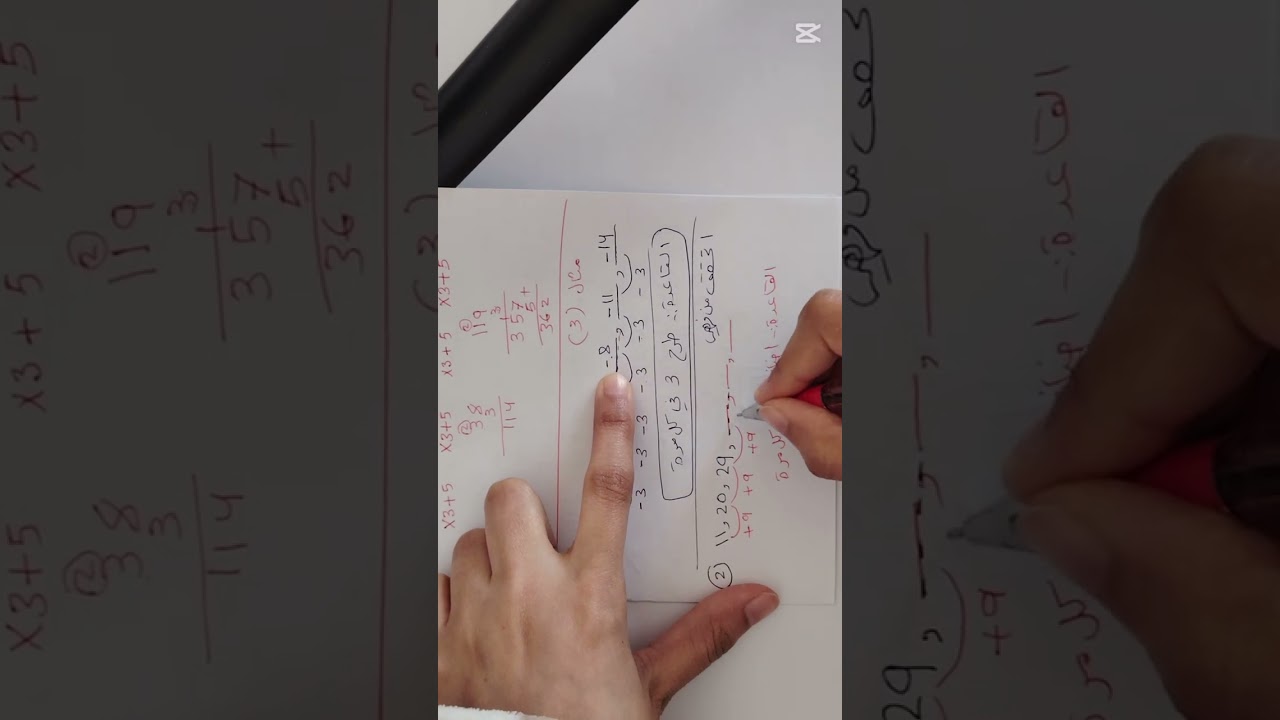 x3+5 x3+5 x3+5 x3+5
② ②
38 119
3 3
114 357
5 +
362
مثال (3)
-8, -11, -14
-3 -3 -3 -3 -3 -3
القاعدة: طرح 3 في كل مرة
② 11, 20, 29,
+9 +9 +9
القاعدة:- كل مرة